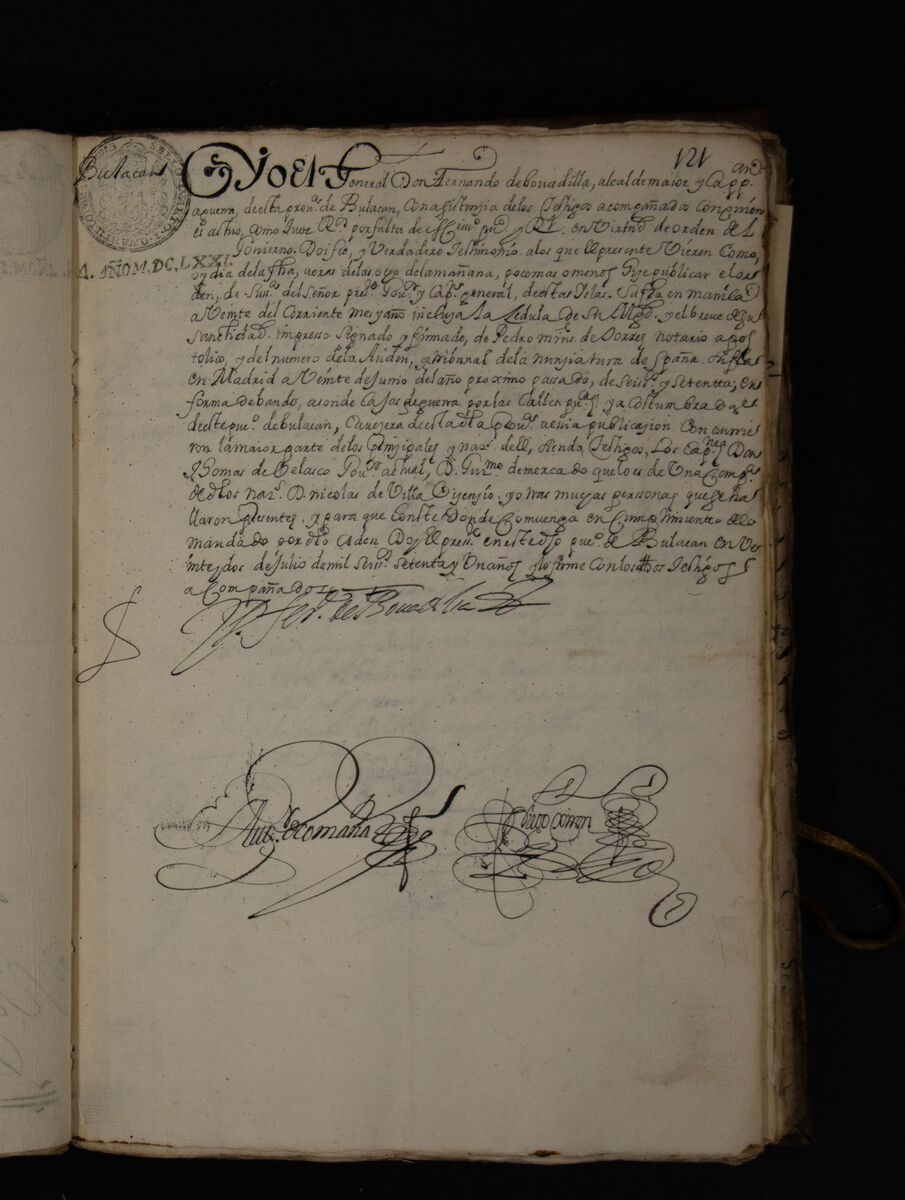 121
Bulacan
Yo El General Don Fernando de bovadilla, alcalde maior y Capp.an
aguerra, desta prov.a de Bulacan, Con asistençia de los Testigos acompañados
como Juez por falta de y Rl. en Virtud de orden del
Govierno. Doi feê, y Verdadero Testimonio. a los que el presente Vieren Como,
A. AÑO M.DC.LXXI.
oy dia de la fha, a oras de las ocho de la mañana, poco mas o menos hiçe publicar el or
den, de Su s.a del Señor press.te Gov.or y Cap.n general, destas Islas. Su fha en manila
a Veinte del Corriente mes y año incluça La Çedula de Su Mag.d y el breve de Su
Sanctidad. impresso Signado y firmado, de Pedro de Torres notario apos
tolico, y del numero de la Audien.a y tribunal de la nunçiatura de españa. Su fha
en Madrid a Veinte de Junio del año proximo passado, de Seisç.s y Setenta; en
forma de bando, a son de Cajas de guerra por las Calles acostumbradas
deste pue.o de bulacan, Caveçera desta dha Prov.a a cuia publicaçion Concurrie
ron la maior parte de los Prinçipales y nat.s del, siendo Testigos, Los Capp.nes Don
Thomas de Velasco Gov.or actual, D. de mercado que lo es de Una Comp.a
de dhos nat.s D. nicolas de Villa y otras muchas personas que se ha
llaron presentes, y para que Conste donde Convenga en Cumplimiento de lo
mandado por dho orden Doy El press.te en este dho pue.o de Bulacan en Ve
inte y dos de Julio de mil Seisç.s Setenta y Un años y lo firme Con los dhos Testigos
acompañados
D. Fer.do de Bovadilla
Diego